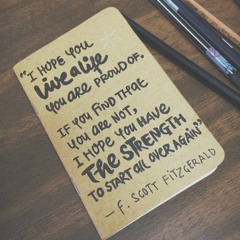 "I HOPE YOU
live a life
YOU ARE PROUD OF.
IF YOU FIND THAT
YOU ARE NOT,
I HOPE YOU HAVE
THE STRENGTH
TO START ALL OVER AGAIN"
— F. SCOTT FITZGERALD